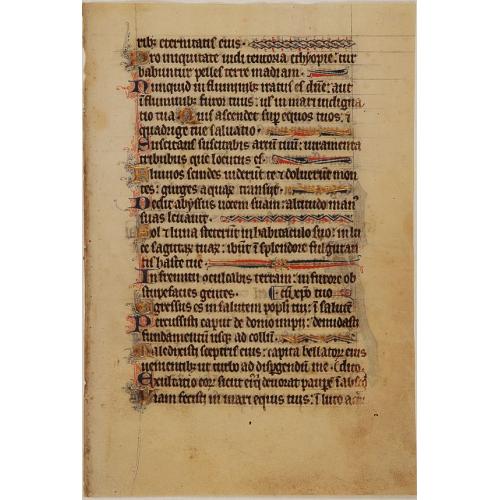 ribz eternitatis eius.
Pro iniquitate uidi tentoria ethyopie: tur
babuntur pelles terre madian.
Nunquid in fluminibz iratus es dñe: aut
ī fluminibz furor tuus: uł in mari indigna
tio tua. Qui ascendes sup equos tuos: ⁊
quadrige tue saluatio.
Suscitans suscitabis arcū tuū: iuramenta
tribubus que locutus es.
Fluuios scindes uiderūt te ⁊ doluerūt mon
tes: gurges aquaꝝ transiit.
Dedit abyssus uocem suam: altitudo man᾿
suas leuauit.
Sol ⁊ luna steterūt in habitaculo suo: in lu
ce sagittaꝝ tuaꝝ: ibūt ī splendore fulguran
tis haste tue.
In fremitu conculcabis terram: in furore ob
stupefacies gentes.
Egressus es in salutem popli tui: ī salutē
cū xp̄o tuo
Percussisti caput de domo impii: denudasti
fundamentū usqꝫ ad collū.
Maledixisti sceptris eius: capiti bellatoꝝ eius
uenientibz ut turbo ad dispgendū me.
Exultatio eoꝝ sicut ei᾿ q̇ deuorat paupeꝝ ī abscō
dito.
Uiam fecisti in mari equis tuis: ī luto